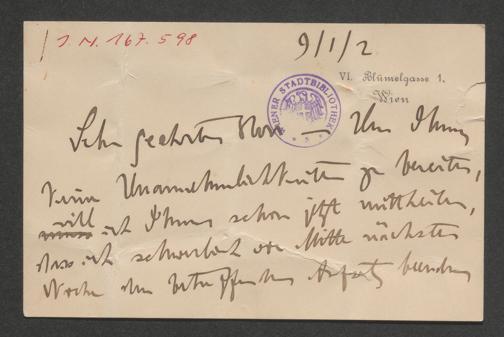 J. N. 167.598
9/1/2
VI. Blümelgasse 1.
Wien
WIENER STADTBIBLIOTHEK
Sehr geehrter Herr — Um Ihnen
keine Unannehmlichkeiten zu bereiten,
will
ich Ihnen schon jetzt mittheilen,
dass ich schwerlich vor Mitte nächster
Woche den betreffenden Aufsatz beenden